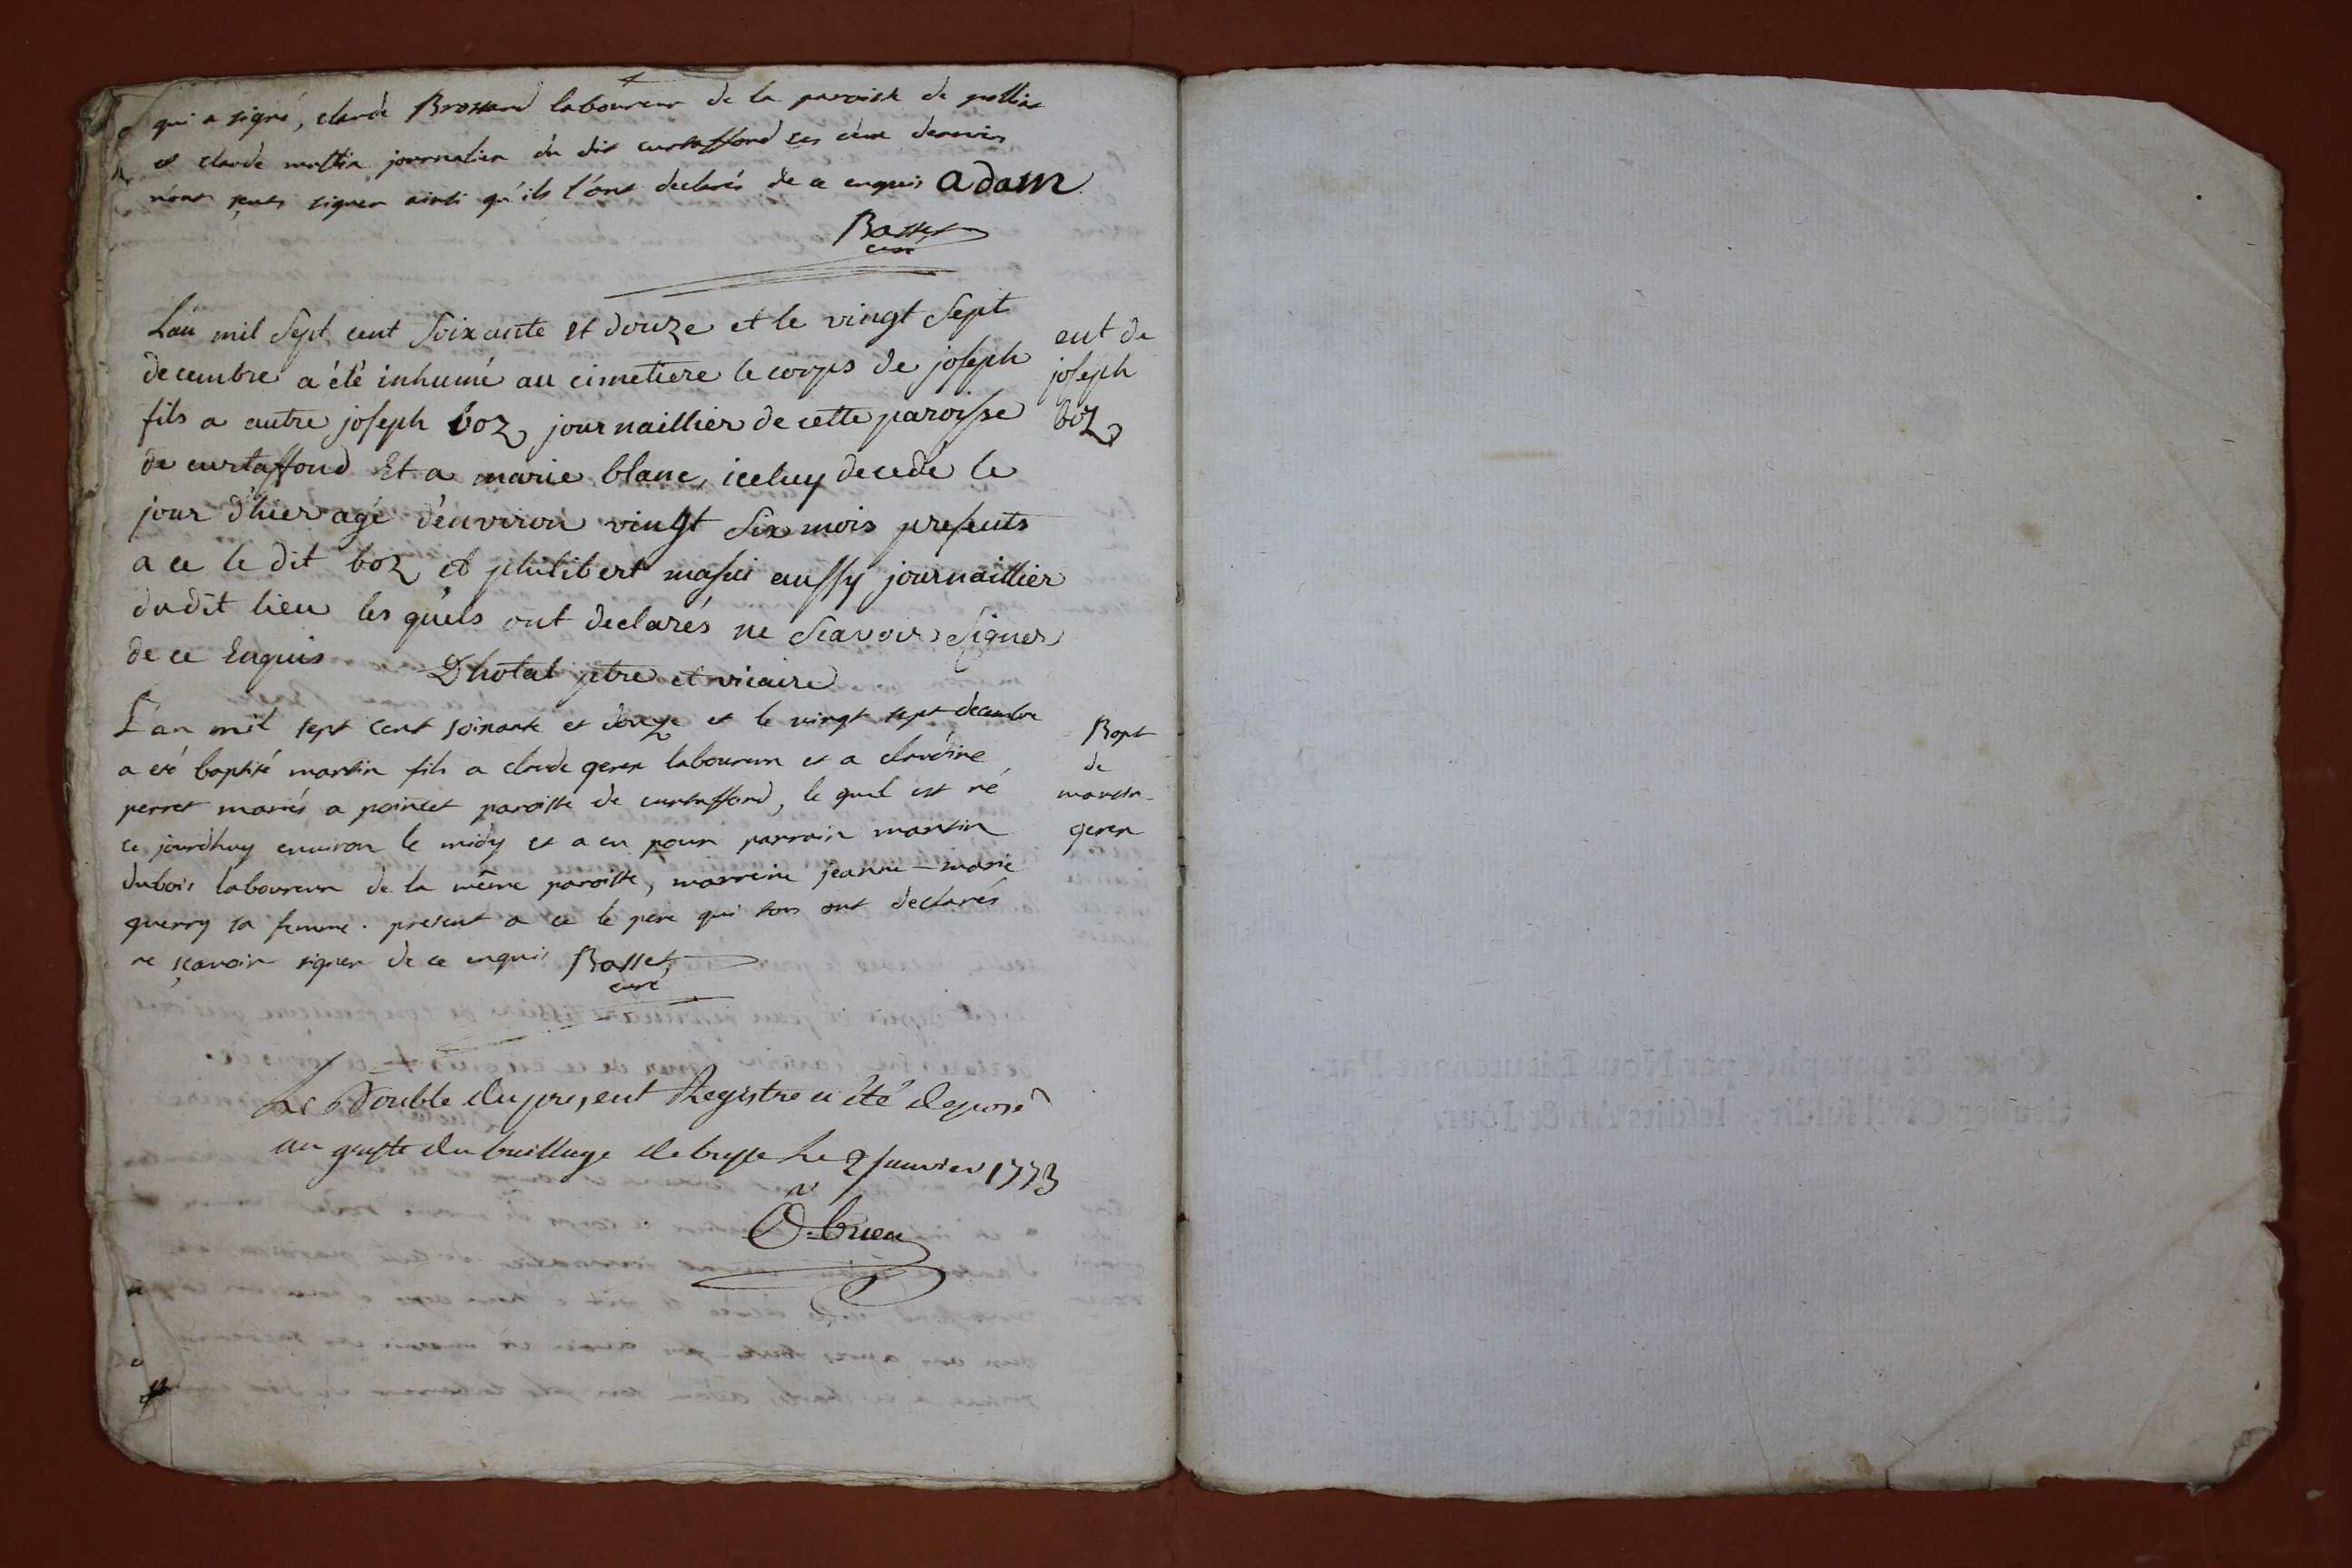 qui a signé, claude Brossard laboureur de la paroisse de polliat
et claude mollia journalier du dit curtaffond ces deux derniers
n'ont sçeus signer ainsi qu'ils l'ont declarés de ce enquis adam
Basset
curé
L'an mil sept cent soixante et douze et le vingt sept
decembre a été inhumé au cimetiere le corps de joseph
fils a autre joseph boz journaillier de cette paroisse
de curtaffond Et a marie blanc, iceluy decedé le
jour d'hier agé d'environ vingt six mois presents
a ce le dit boz et philibert aussy journaillier
du dit lieu les quels ont declarés ne scavoir signer
de ce Enquis Dhotal ptre et vicaire
ent de
joseph
boz
L'an mil sept cent soixante et douze et le vingt sept decembre
a eté baptisé martin fils a claude gerex laboureur et a claudine
perret mariés a poincet paroisse de curtaffond, le quel est né
ce jourdhuy environ le midy et a eu pour parrain martin
dubois laboureur de la même paroisse, marreine jeanne-marie
guerry sa femme. présent a ce le pere qui tous ont declarés
ne sçavoir signer de ce enquis Basset
curé
Bapt
de
martin
gerex
Le Double du present Registre a été deposé
au greffe du bailliage de bresse Le 2 Janvier 1773
O-brien